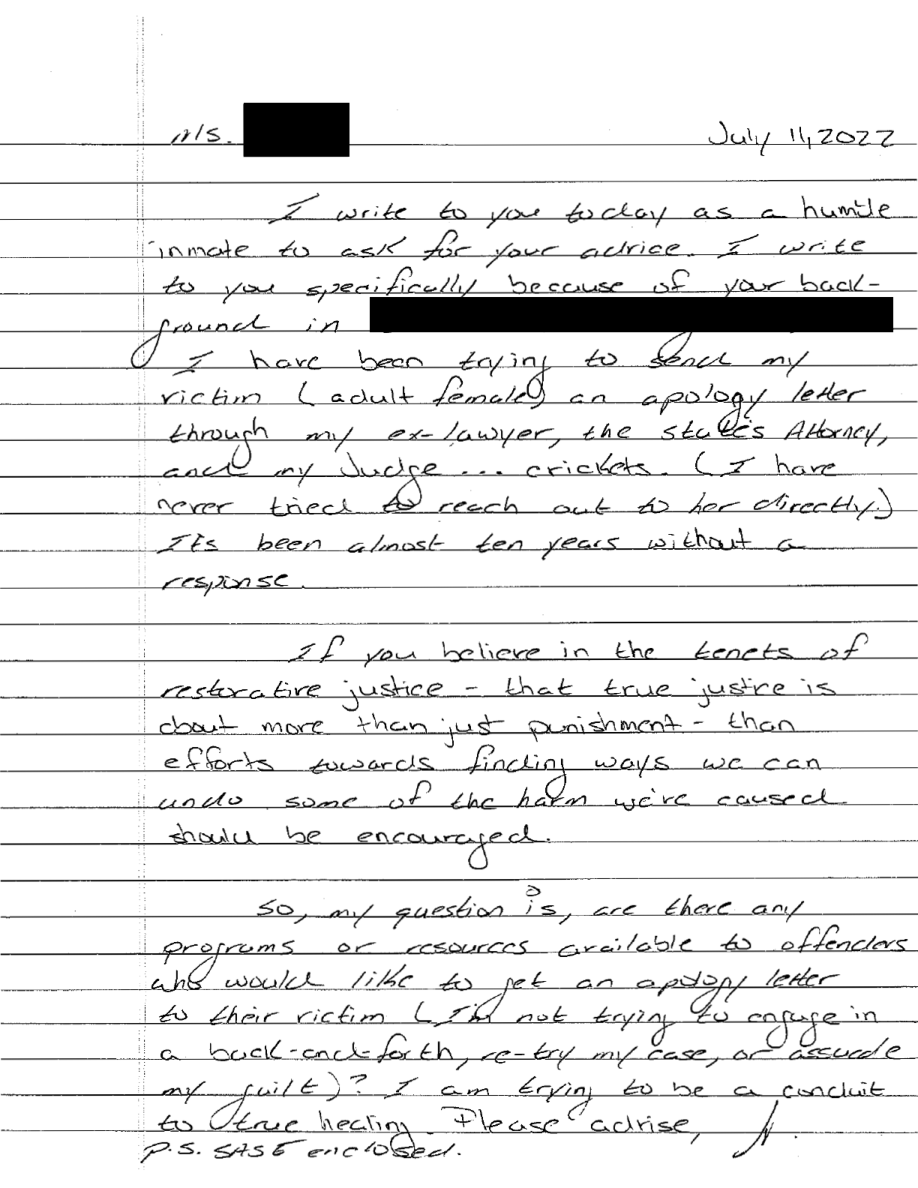 Ms.
July 11, 2022
I write to you today as a humble
inmate to ask for your advice. I write
to you specifically because of your back-
ground in
I have been trying to send my
victim (adult female) an apology letter
through my ex-lawyer, the state's Attorney,
and my Judge ... crickets. (I have
never tried to reach out to her directly.)
Its been almost ten years without a
response.
If you believe in the tenets of
restorative justice - that true justice is
about more than just punishment - than
efforts towards finding ways we can
undo some of the harm we've caused
should be encouraged.
So, my question is, are there any
programs or resources available to offenders
who would like to get an apology letter
to their victim (I'm not trying to engage in
a back-and-forth, re-try my case, or assuade
my guilt)? I am trying to be a conduit
to true healing. Please advise,
P.S. SASE enclosed.